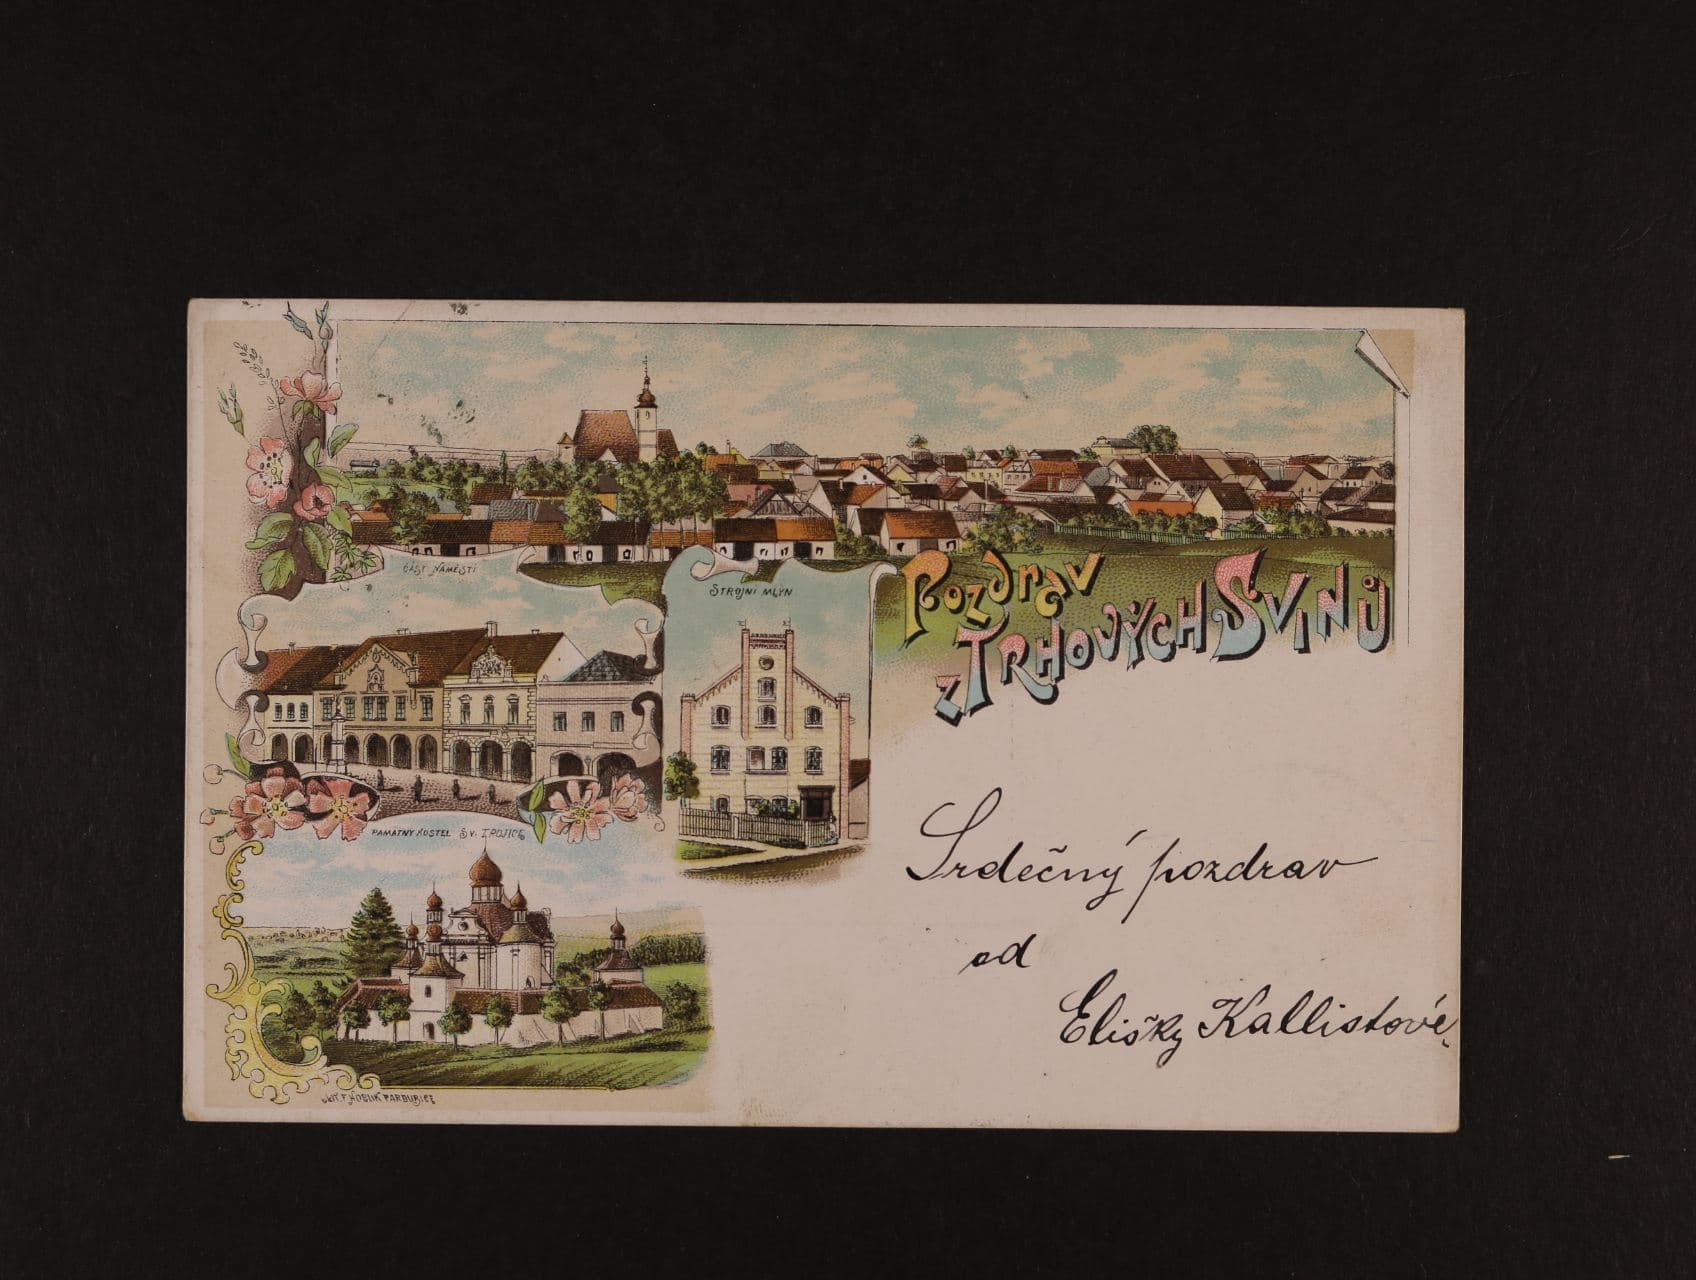 Část náměstí
Strojní mlýn
Pozdrav
z Trhových Svinů
Památný kostel Sv. Trojice
Srdečný pozdrav
od
Elišky Kallistové.
Lit. F. Hoblík Pardubice